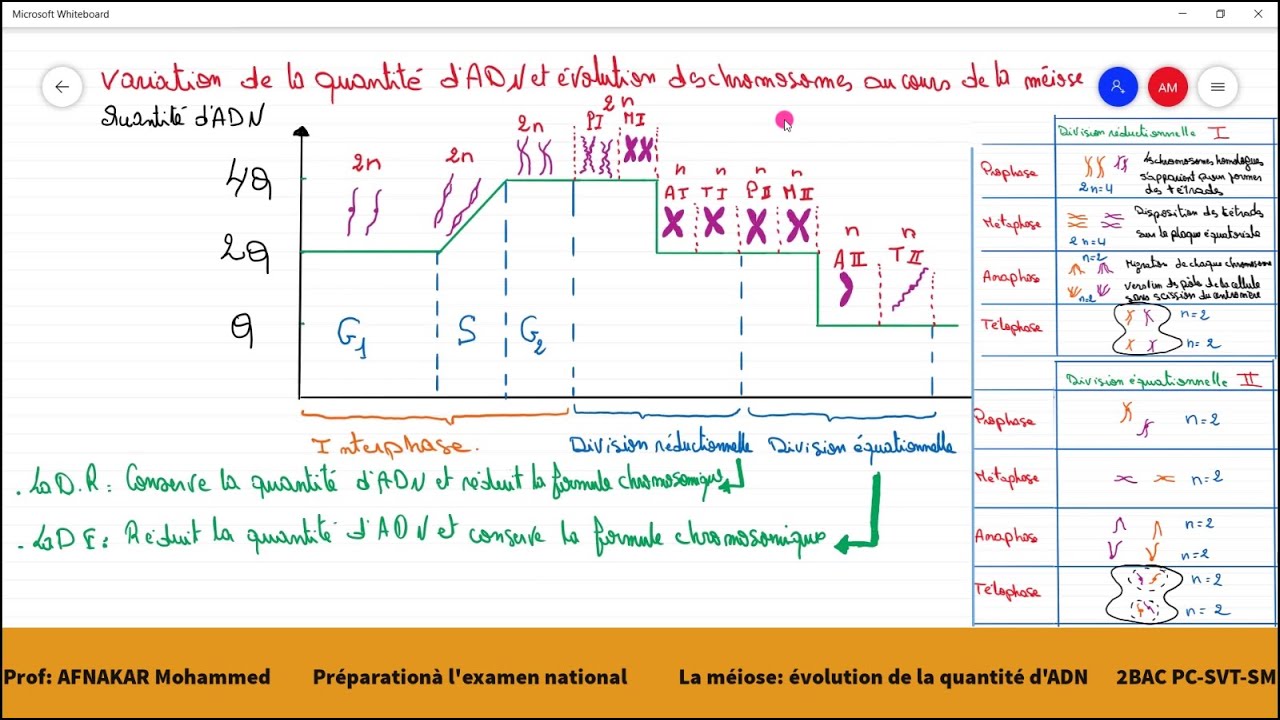 Microsoft Whiteboard
Variation de la quantité d'ADN et évolution des chromosomes au cours de la méiose
AM
Quantité d'ADN
4Q
2Q
Q
2n
2n
2n
2n
PI
n
MI
n
n
n
n
AI
TI
PII
MII
n
n
AII
TII
G1
S
G2
Interphase.
Division réductionnelle
Division équationnelle
. La D.R: Conserve la quantité d'ADN et réduit la formule chromosomique
. La D E: Réduit la quantité d'ADN et conserve la formule chromosomique
Division réductionnelle I
Prophase
2n=4
Les chromosomes homologues
s'apparient pour former
des tétrades
Métaphase
2n=4
Disposition des tétrades
sur la plaque équatoriale
Anaphase
n=2
n=2
Migration de chaque chromosome
vers l'un des pôles de la cellule
sans scission du centromère
Télophase
n=2
n=2
Division équationnelle II
Prophase
n=2
Métaphase
n=2
Anaphase
n=2
n=2
Télophase
n=2
n=2
Prof: AFNAKAR Mohammed
Préparationà l'examen national
La méiose: évolution de la quantité d'ADN
2BAC PC-SVT-SM